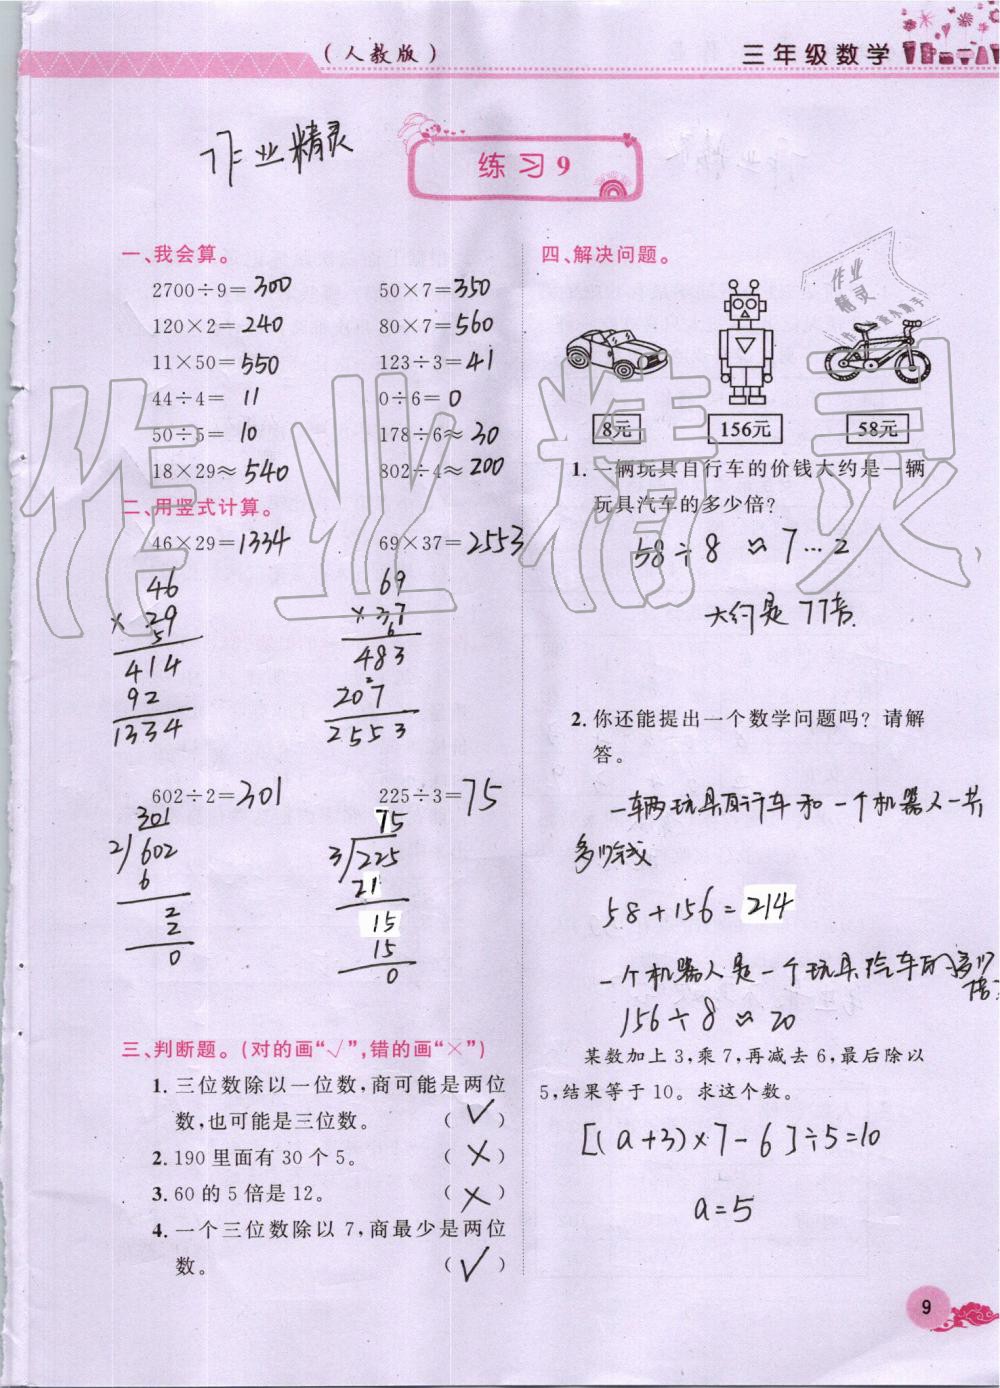 （人教版）
三年级数学
作业精灵
练习9
一、我会算。
2700÷9=300 50×7=350
120×2=240 80×7=560
11×50=550 123÷3=41
44÷4=11 0÷6=0
50÷5=10 178÷6≈30
18×29≈540 802÷4≈200
二、用竖式计算。
46×29=1334 69×37=2553
46 69
×29 ×37
5 6
414 483
92 2
1334 207
2553
602÷2=301 225÷3=75
301 75
2/602 3/225
6 21
2 15
2 15
0 0
三、判断题。（对的画“√”，错的画“×”）
1. 三位数除以一位数，商可能是两位
数，也可能是三位数。 （√）
2. 190 里面有 30 个 5。 （×）
3. 60 的 5 倍是 12。 （×）
4. 一个三位数除以 7，商最少是两位
数。 （√）
四、解决问题。
作业
精灵
8元 156元 58元
1. 一辆玩具自行车的价钱大约是一辆
玩具汽车的多少倍？
58÷8≈7…2
大约是77倍.
2. 你还能提出一个数学问题吗？请解
答。
一车两玩具自行车和一个机器人一共
多少钱
58+156=214
一个机器人是一个玩具汽车的多少
倍？
156÷8≈20
某数加上 3，乘 7，再减去 6，最后除以
5，结果等于 10。求这个数。
[(a+3)×7-6]÷5=10
a=5
9
作业精灵